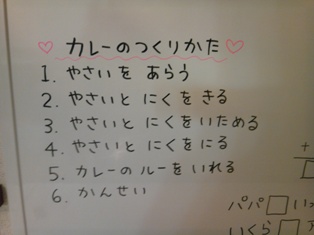 ♡ カレーのつくりかた ♡
1. やさいを あらう
2. やさいと にくを きる
3. やさいと にくをいためる
4. やさいと にくを にる
5. カレーの ルーを いれる
6. かんせい
+
パパ□い
いくら□